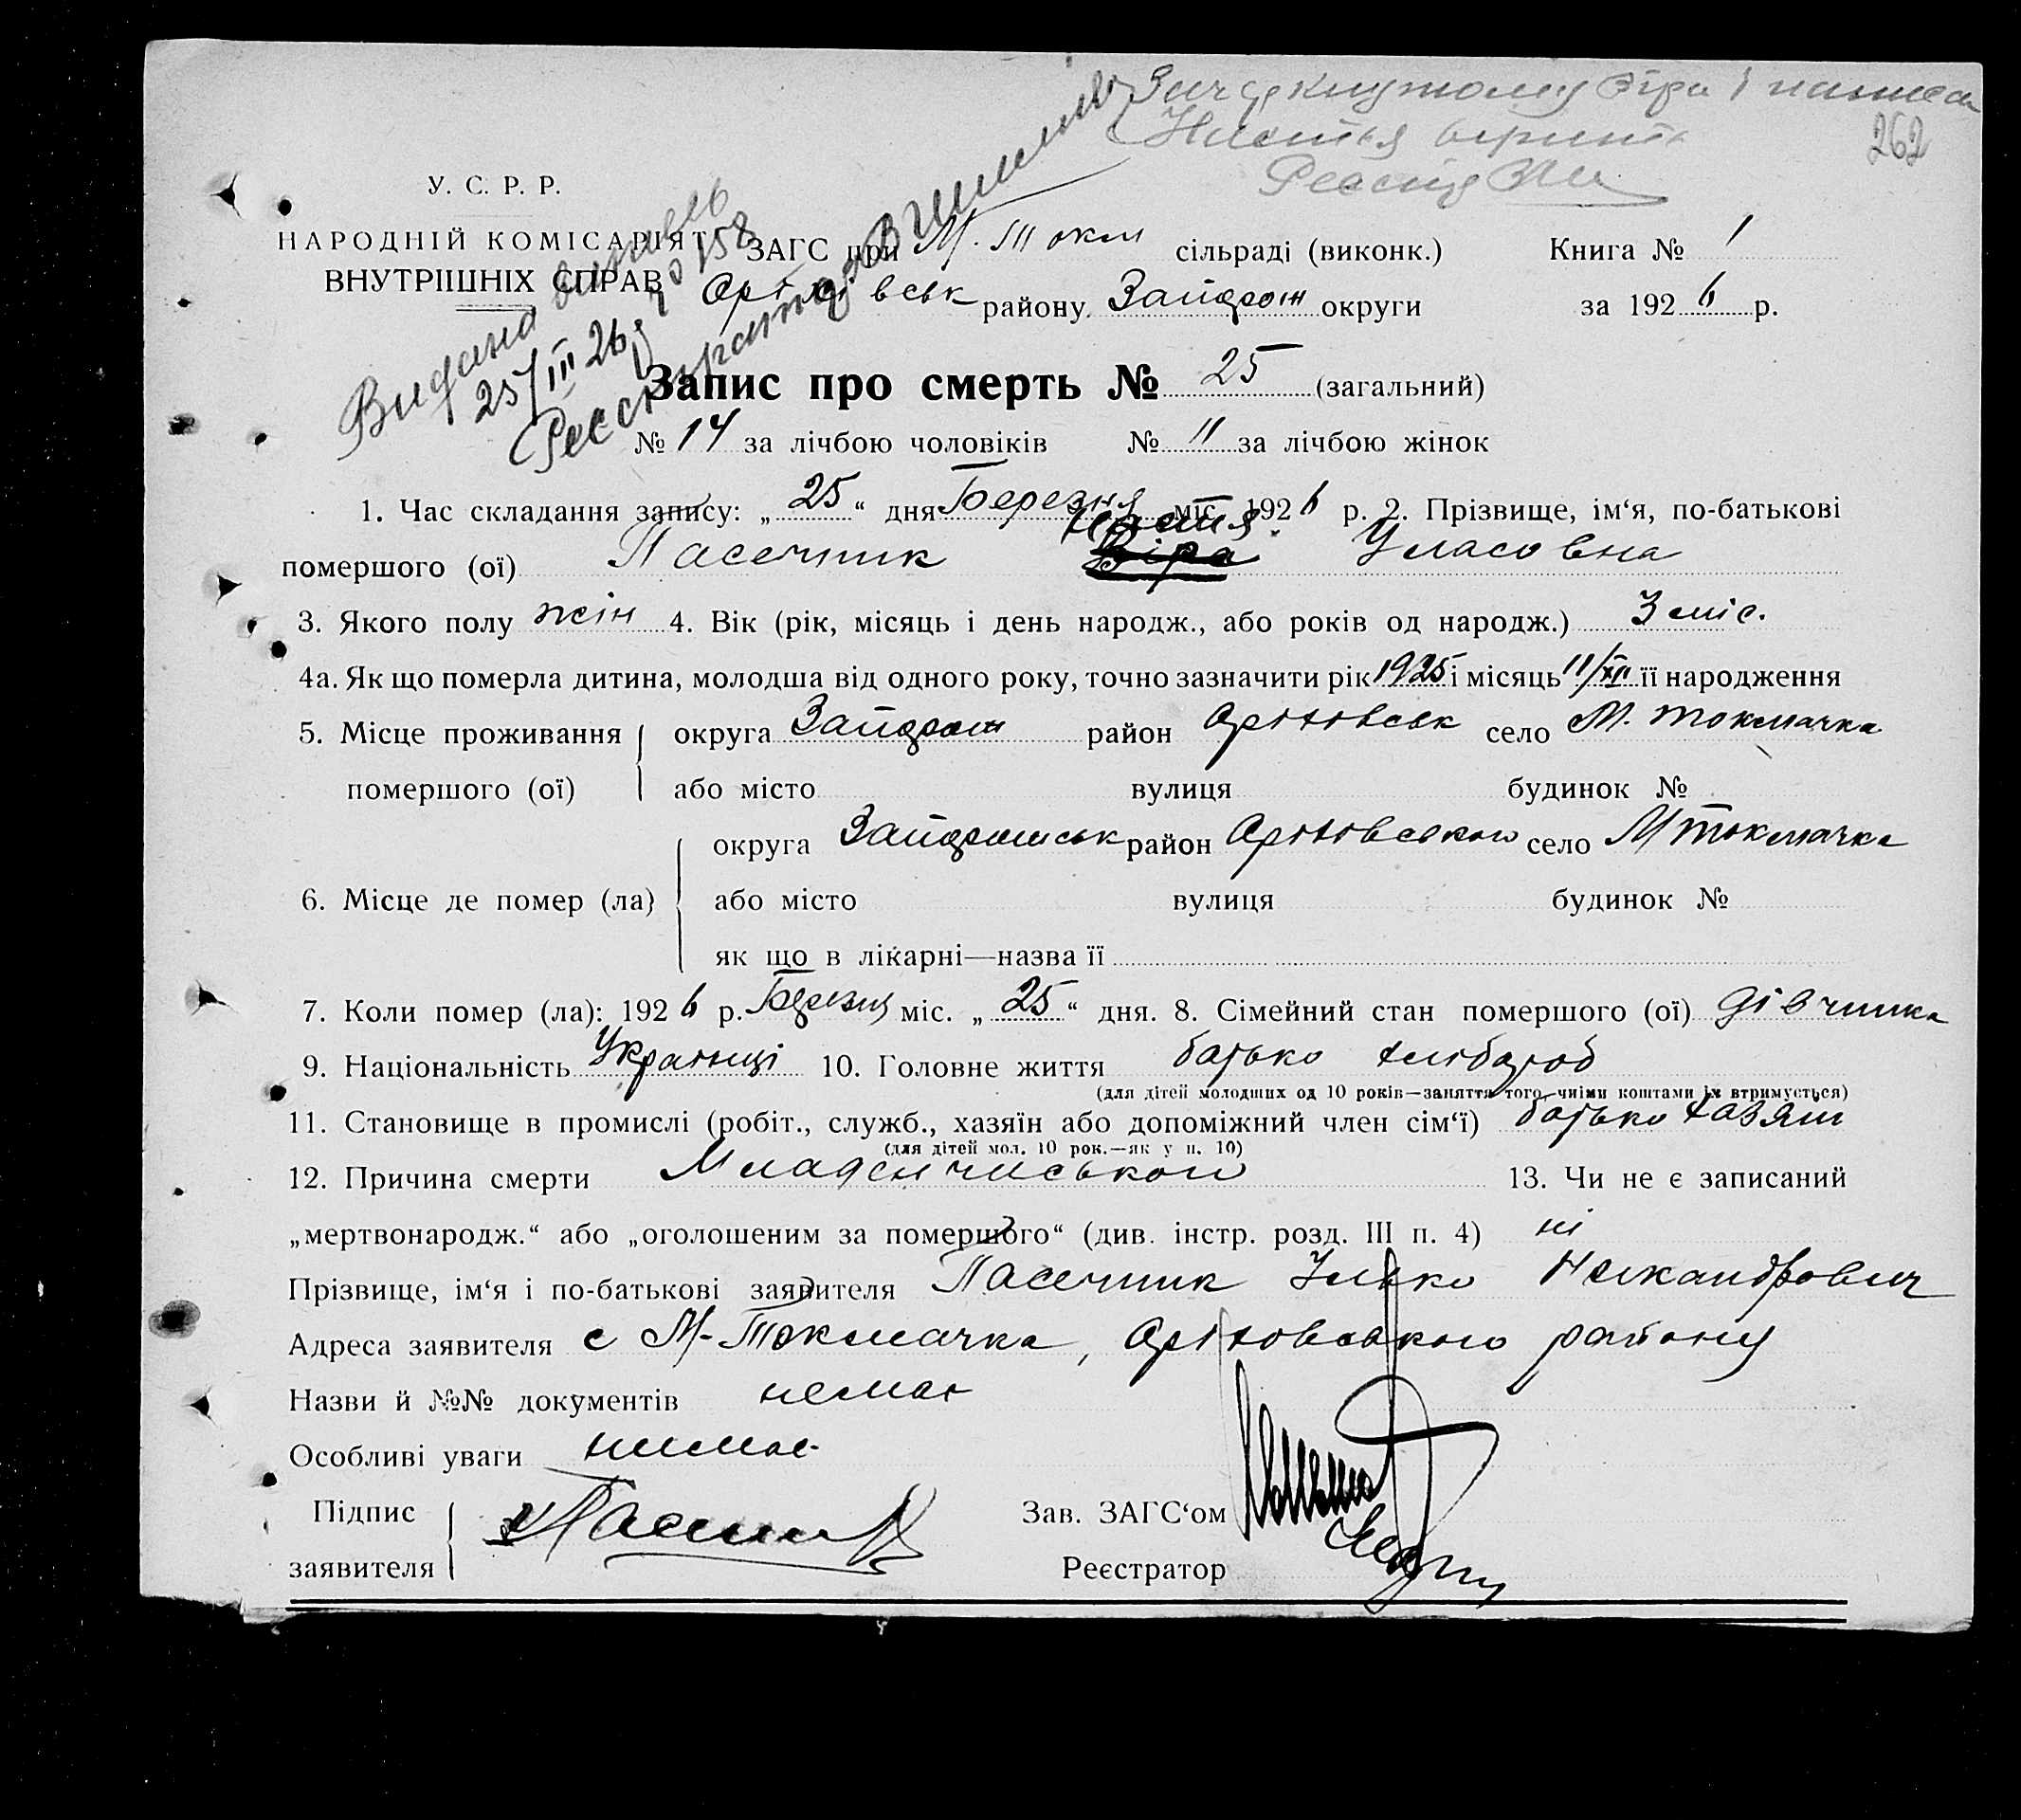 262
У. С. Р. Р.
НАРОДНІЙ КОМІСАРІЯТ
ВНУТРІШНІХ СПРАВ
Видана випись
25/III 26 р № 158
ЗАГС при М. Токм сільраді (виконк.) Книга № 1
Оріхівськ району Запорож округи за 1926 р.
Запис про смерть № 25 (загальний)
№ 14 за лічбою чоловіків № 11 за лічбою жінок
1. Час складання запису: „25“ дня Березня міс. 1926 р. 2. Прізвище, ім‘я, по-батькові
Настя
помершого (ої) Пасечник Віра Уласовна
3. Якого полу жін 4. Вік (рік, місяць і день народж., або років од народж.) 3 міс.
4а. Як що померла дитина, молодша від одного року, точно зазначити рік 1925 і місяць 11/XII її народження
5. Місце проживання округа Запорож район Оріхівськ село М. Токмачка
помершого (ої) або місто вулиця будинок №
округа Запорожськ район Оріхівського село М Токмачка
6. Місце де помер (ла) або місто вулиця будинок №
як що в лікарні—назва її
7. Коли помер (ла): 1926 р. Березня міс. „25“ дня. 8. Сімейний стан помершого (ої) дівчинка
9. Національність Українці 10. Головне життя батько хлібороб
(для дітей молодших од 10 років—заняття того, чиїми коштами їх втримується)
11. Становище в промислі (робіт., служб., хазяїн або допоміжний член сім‘ї) батько хазяін
(для дітей мол. 10 рок.—як у п. 10)
12. Причина смерти Младенчиського 13. Чи не є записаний
„мертвонародж.“ або „оголошеним за помершого“ (див. інстр. розд. III п. 4) ні
Прізвище, ім‘я і по-батькові заявителя Пасечник Улько Никандрович
Адреса заявителя с М-Токмачка, Оріховського району
Назви й №№ документів немає
Особливі уваги нимає
Підпис Зав. ЗАГС‘ом
заявителя Реєстратор